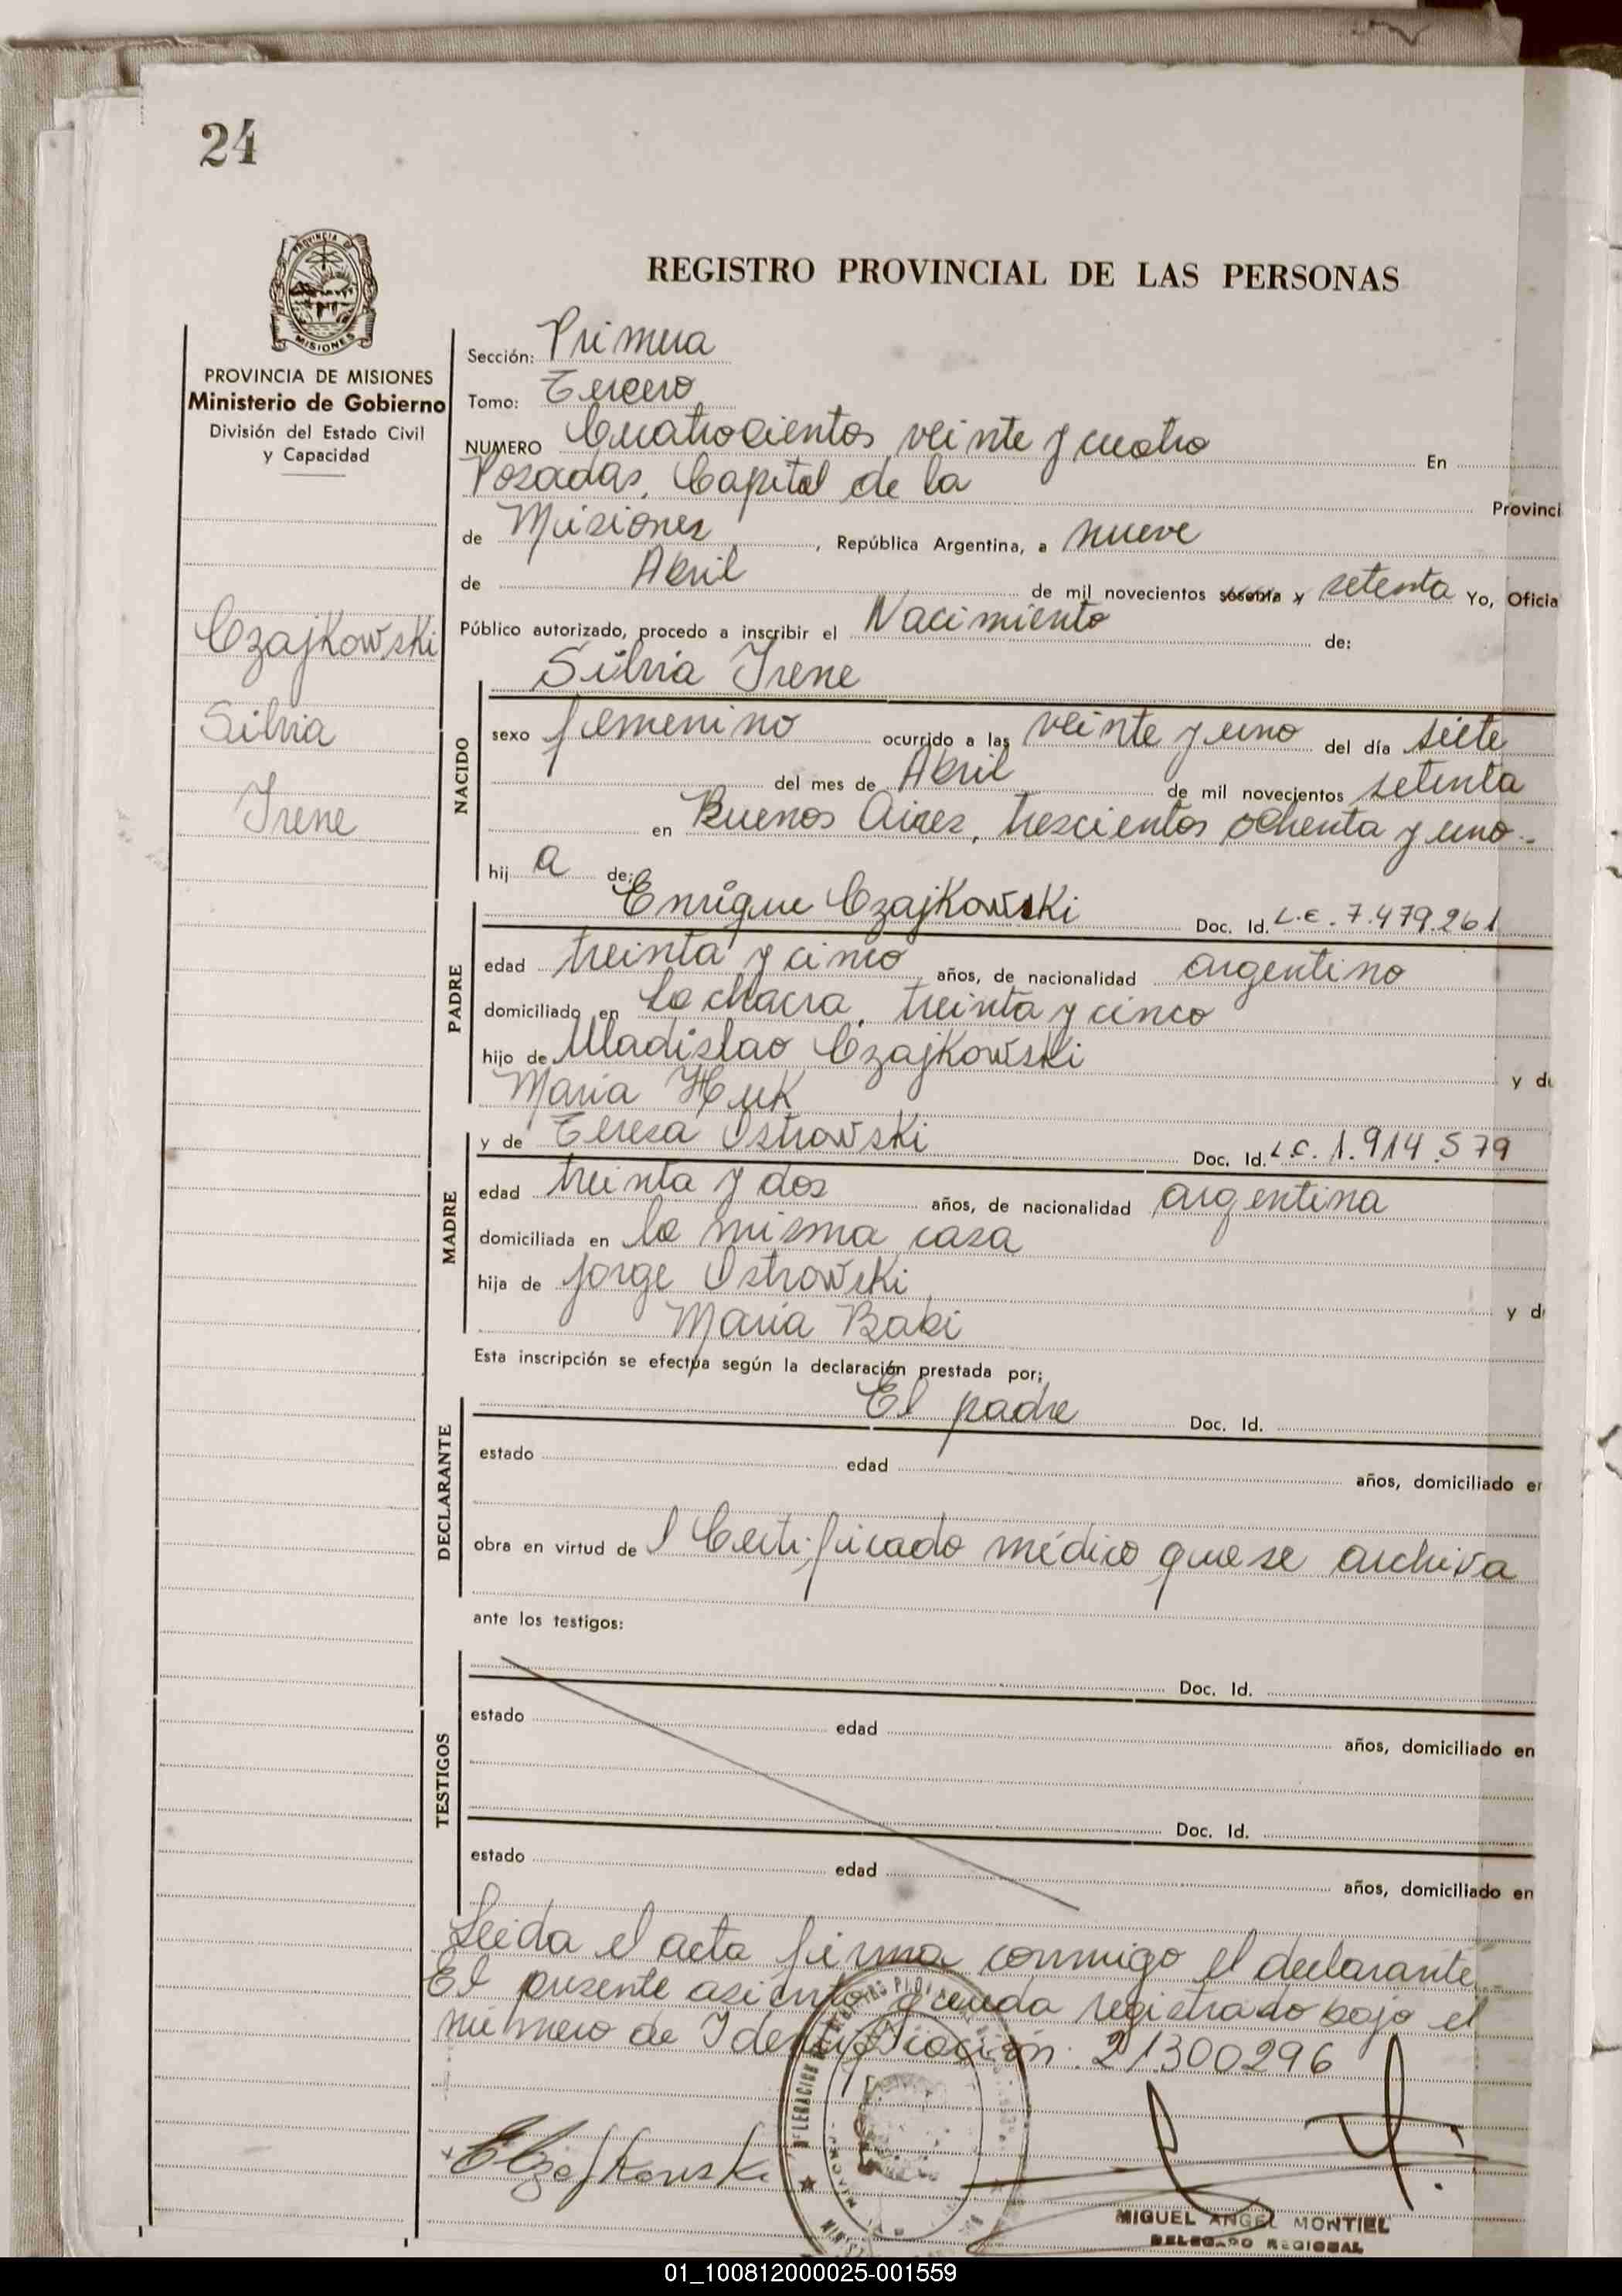 24
REGISTRO PROVINCIAL DE LAS PERSONAS
PROVINCIA DE
MISIONES
PROVINCIA DE MISIONES
Ministerio de Gobierno
División del Estado Civil
y Capacidad
Czajkowski
Silvia
Irene
Sección: Primera
Tomo: Tercero
NUMERO Cuatrocientos veinte y cuatro En
Posadas, Capital de la Provinci
de Misiones, República Argentina, a nueve
de Abril de mil novecientos sesenta y setenta Yo, Oficia
Público autorizado, procedo a inscribir el Nacimiento de:
Silvia Irene
NACIDO
sexo femenino ocurrido a las veinte y uno del día siete
del mes de Abril de mil novecientos setenta
en Buenos Aires, trescientos ochenta y uno.-
hij a de:
Enrique Czajkowski Doc. Id. L.E. 7.479.261
PADRE
edad treinta y cinco años, de nacionalidad argentino
domiciliado en la chacra, treinta y cinco
hijo de Uladislao Czajkowski y de
María Huk
y de Teresa Ostrowski Doc. Id. L.C. 1.914.579
MADRE
edad treinta y dos años, de nacionalidad argentina
domiciliada en la misma casa
hija de Jorge Ostrowski y d
María Babi
Esta inscripción se efectúa según la declaración prestada por;
El padre Doc. Id.
DECLARANTE
estado edad años, domiciliado en
obra en virtud de l Certificado médico que se archiva
ante los testigos:
TESTIGOS
Doc. Id.
estado edad años, domiciliado en
Doc. Id.
estado edad años, domiciliado en
Leida el acta firma conmigo el declarante
El presente asiento queda registrado bajo el
número de Identificación: 21300296
Czajkowski
MIGUEL ANGEL MONTIEL
DELEGADO REGIONAL
01_100812000025-001559